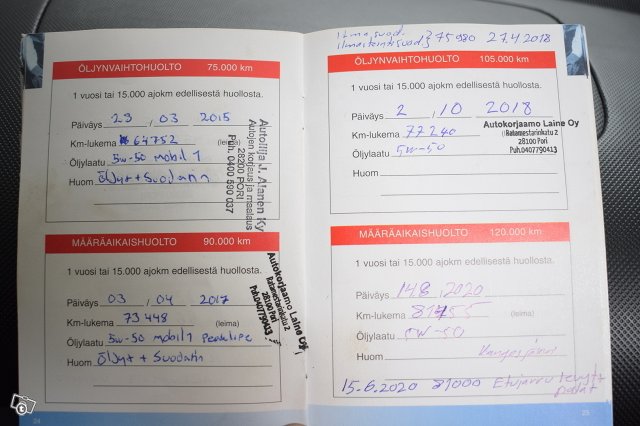 ÖLJYNVAIHTOHUOLTO 75.000 km
1 vuosi tai 15.000 ajokm edellisestä huollosta.
Päiväys 23 / 03 2015
Km-lukema 64752 (leima)
Öljylaatu 5w-50 mobil 1
Huom Öljyt + Suodatin
Autoilija J. Alanen Ky
Autojen korjaus ja maalaus
28200 PORI
Puh. 0400 590 037
MÄÄRÄAIKAISHUOLTO 90.000 km
1 vuosi tai 15.000 ajokm edellisestä huollosta.
Päiväys 03 / 04 2017
Km-lukema 73448 (leima)
Öljylaatu 5w-50 mobil 1
Huom Öljyt + Suodatin
Autokorjaamo Laine Oy
Ratamestarinkatu 2
28100 Pori
Puh.0407790413
24
Ilmasuod.
ilmastointisuod } 75980 27.4 2018
ÖLJYNVAIHTOHUOLTO 105.000 km
1 vuosi tai 15.000 ajokm edellisestä huollosta.
Päiväys 2 / 10 2018
Km-lukema 77240 (leima)
Öljylaatu 5W-50
Huom
Autokorjaamo Laine Oy
Ratamestarinkatu 2
28100 Pori
Puh.0407790413
MÄÄRÄAIKAISHUOLTO 120.000 km
1 vuosi tai 15.000 ajokm edellisestä huollosta.
Päiväys 14.8 2020
Km-lukema (leima)
Öljylaatu 0W-50
Huom
15.6.2020 81000 Etujarru levyt +
palat
25